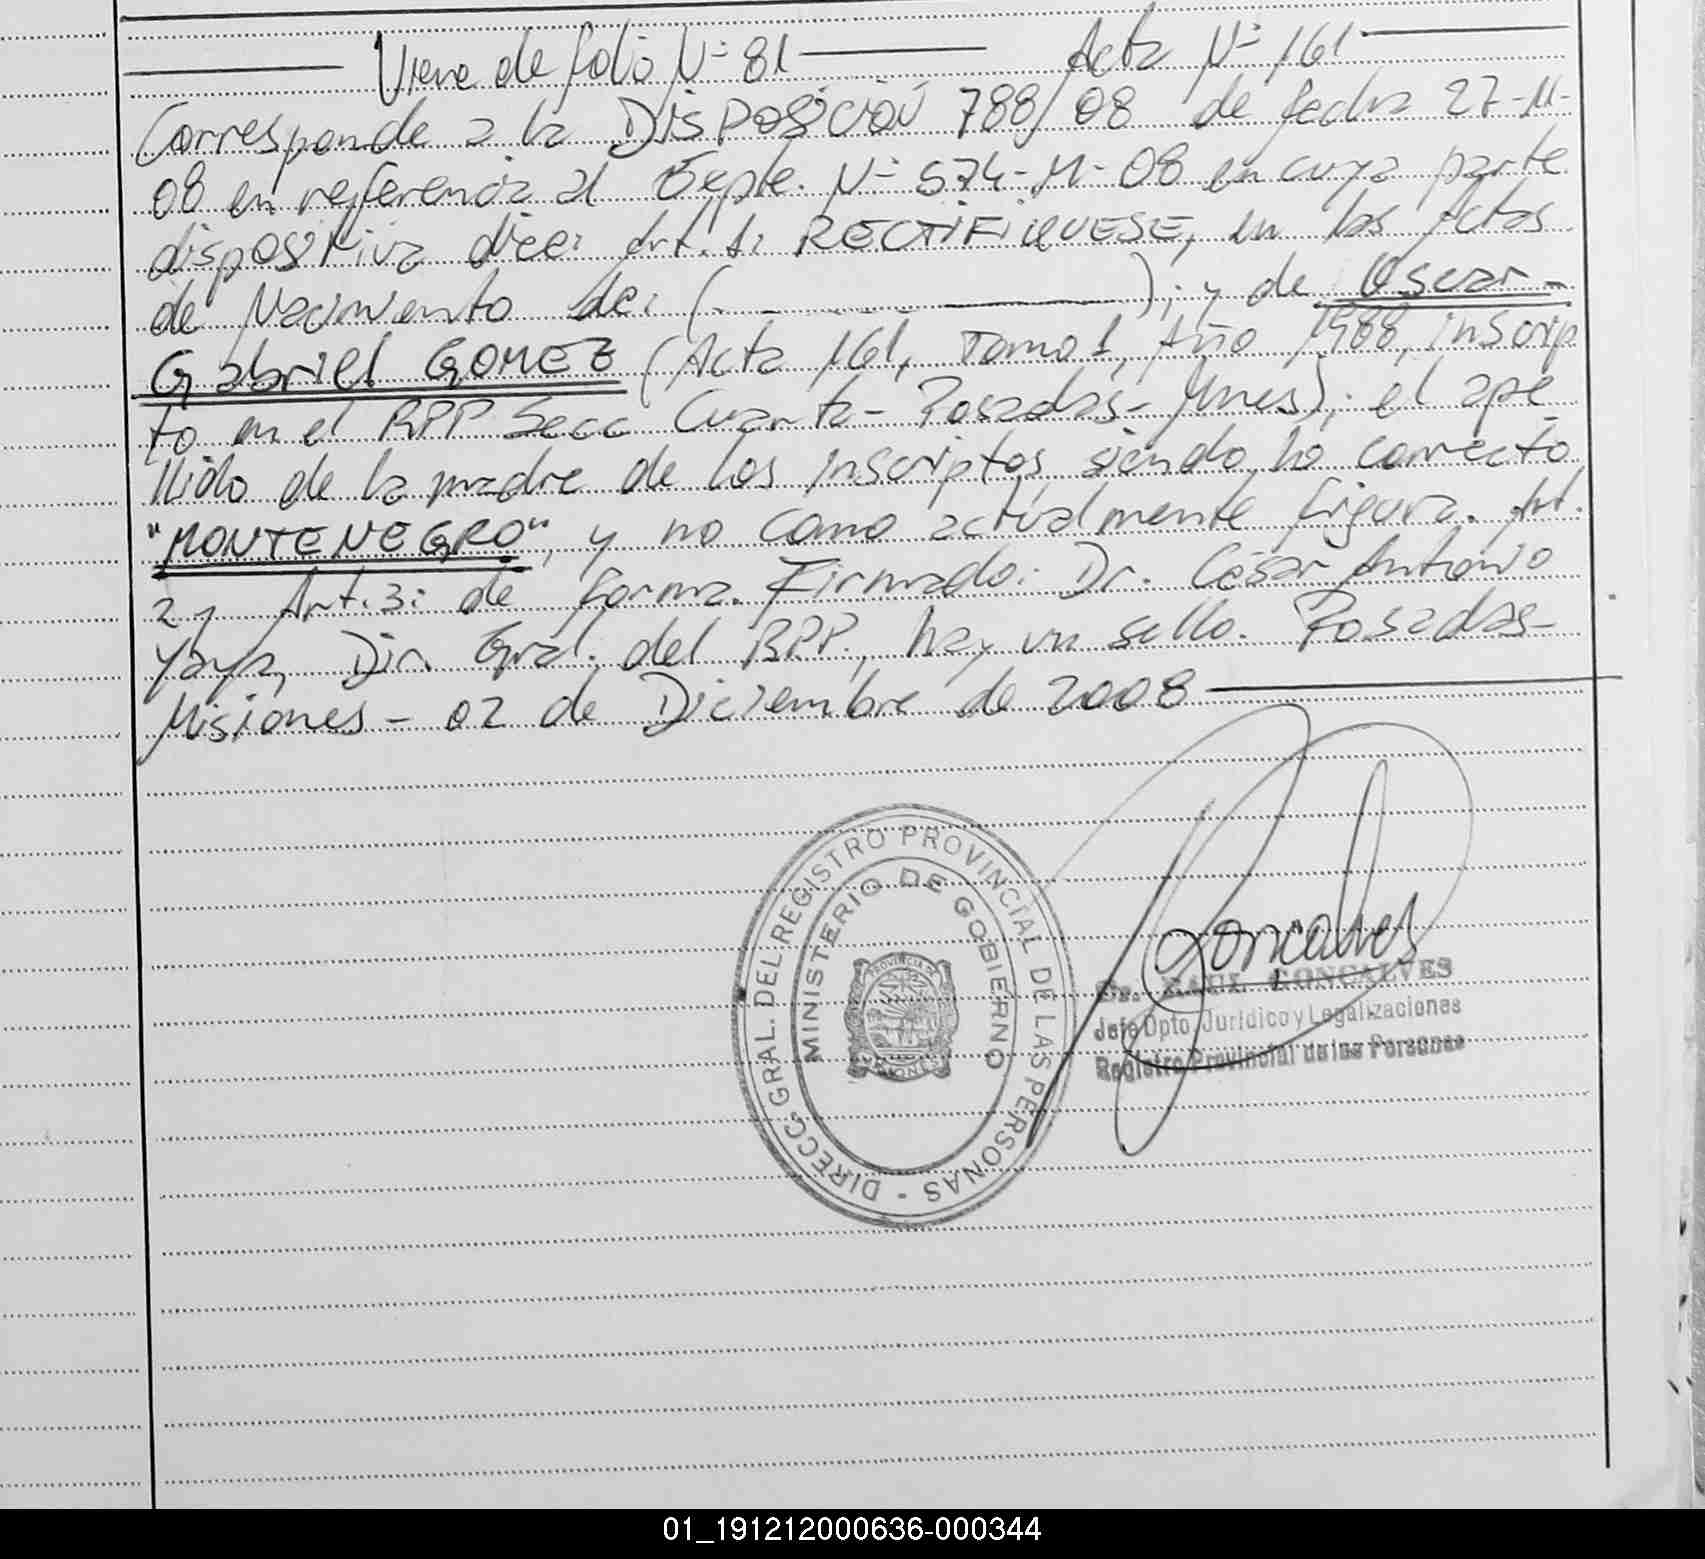 Viene de folio Nº 81 Acta Nº 161
Corresponde a la DISPOSICIÓN 788/08 de fecha 27-11-
08 en referencia al Expte. Nº 574-M-08 en cuya parte
dispositiva dice: Art. 1: RECTIFIQUESE, en las Actas
de Nacimiento de: ( ); y de Oscar
Gabriel GOMEZ (Acta 161, Tomo 1, Año 1988, inscrip
to en el RPP Secc Cuarta - Posadas - Mnes); el ape
llido de la madre de los inscriptos, siendo lo correcto
"MONTENEGRO", y no como actualmente figura. Art.
2 y Art. 3: de forma. Firmado: Dr. César Antonio
Yaya, Dir. Gral. del RPP., hay un sello. Posadas-
Misiones - 02 de Diciembre de 2008
DIRECC. GRAL. DEL REGISTRO PROVINCIAL DE LAS PERSONAS -
MINISTERIO DE GOBIERNO
PROVINCIA DE
MISIONES
Goncalves
GONCALVES
Jefe Dpto. Jurídico y Legalizaciones
Registro Provincial de las Personas
01_191212000636-000344